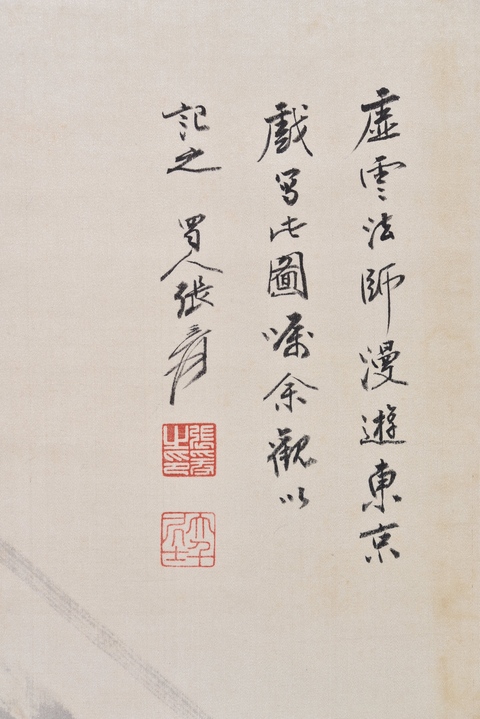 虛雲法師漫遊東京
戲写此圖囑余觀以
記之 蜀人張爰
張爰之印
大千居士